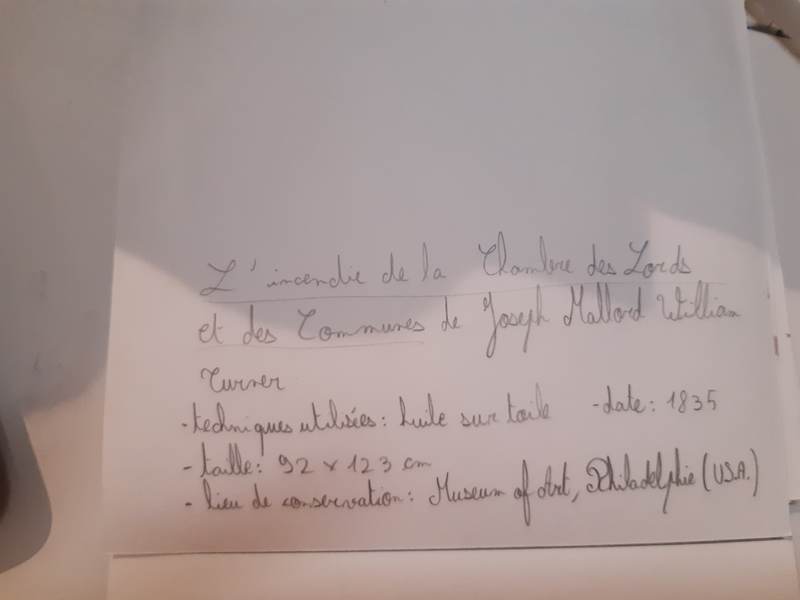 L'incendie de la Chambre des Lords
et des Communes de Joseph Mallord William
Turner
- techniques utilisées: huile sur toile - date: 1835
- taille: 92 x 123 cm
- lieu de conservation: Museum of Art, Philadelphie (USA.)